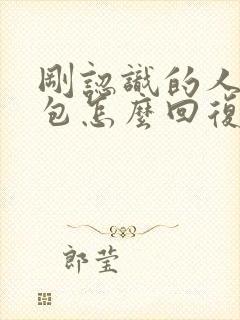 剛認識的人
包怎麼回復
郎莹